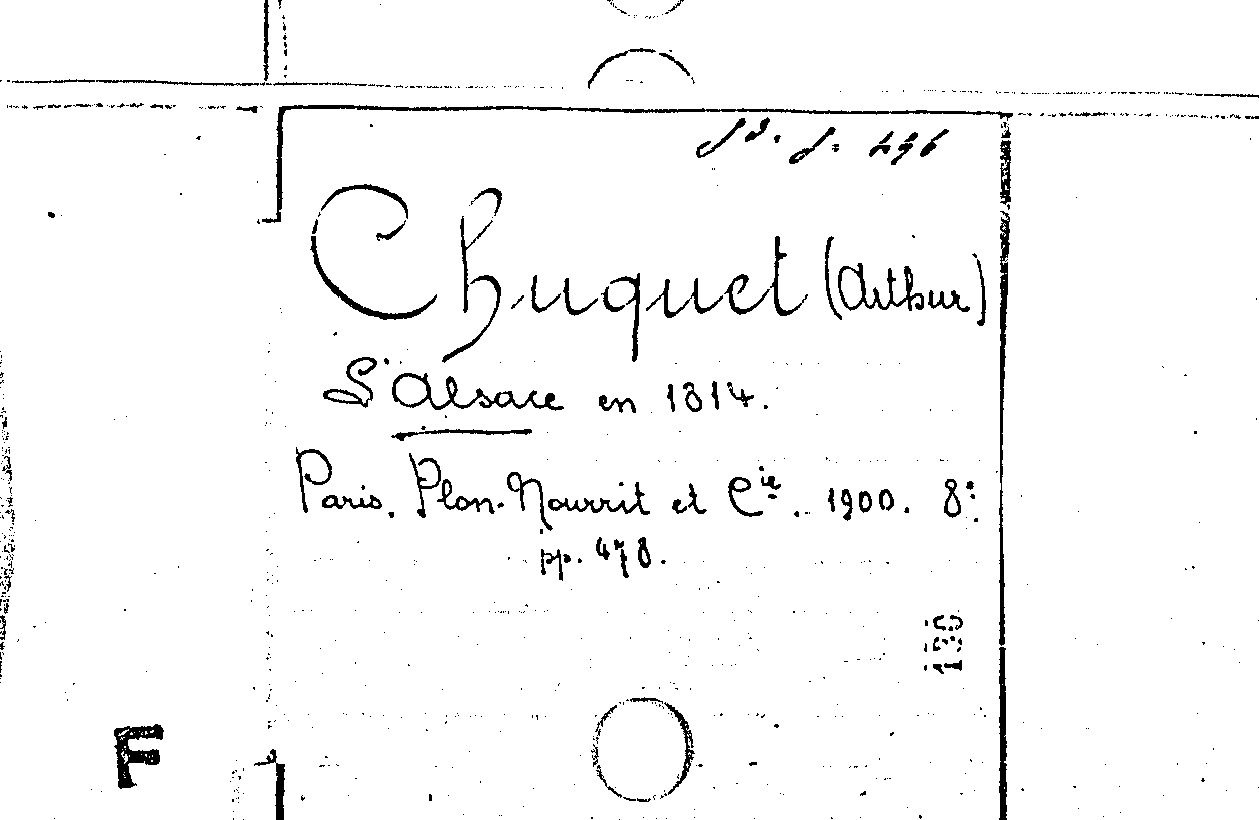 Chuquet (Arthur)
L'Alsace en 1814.
Paris. Plon-Nourrit et Cie. 1900. 8°.
pp. 478.
130
F